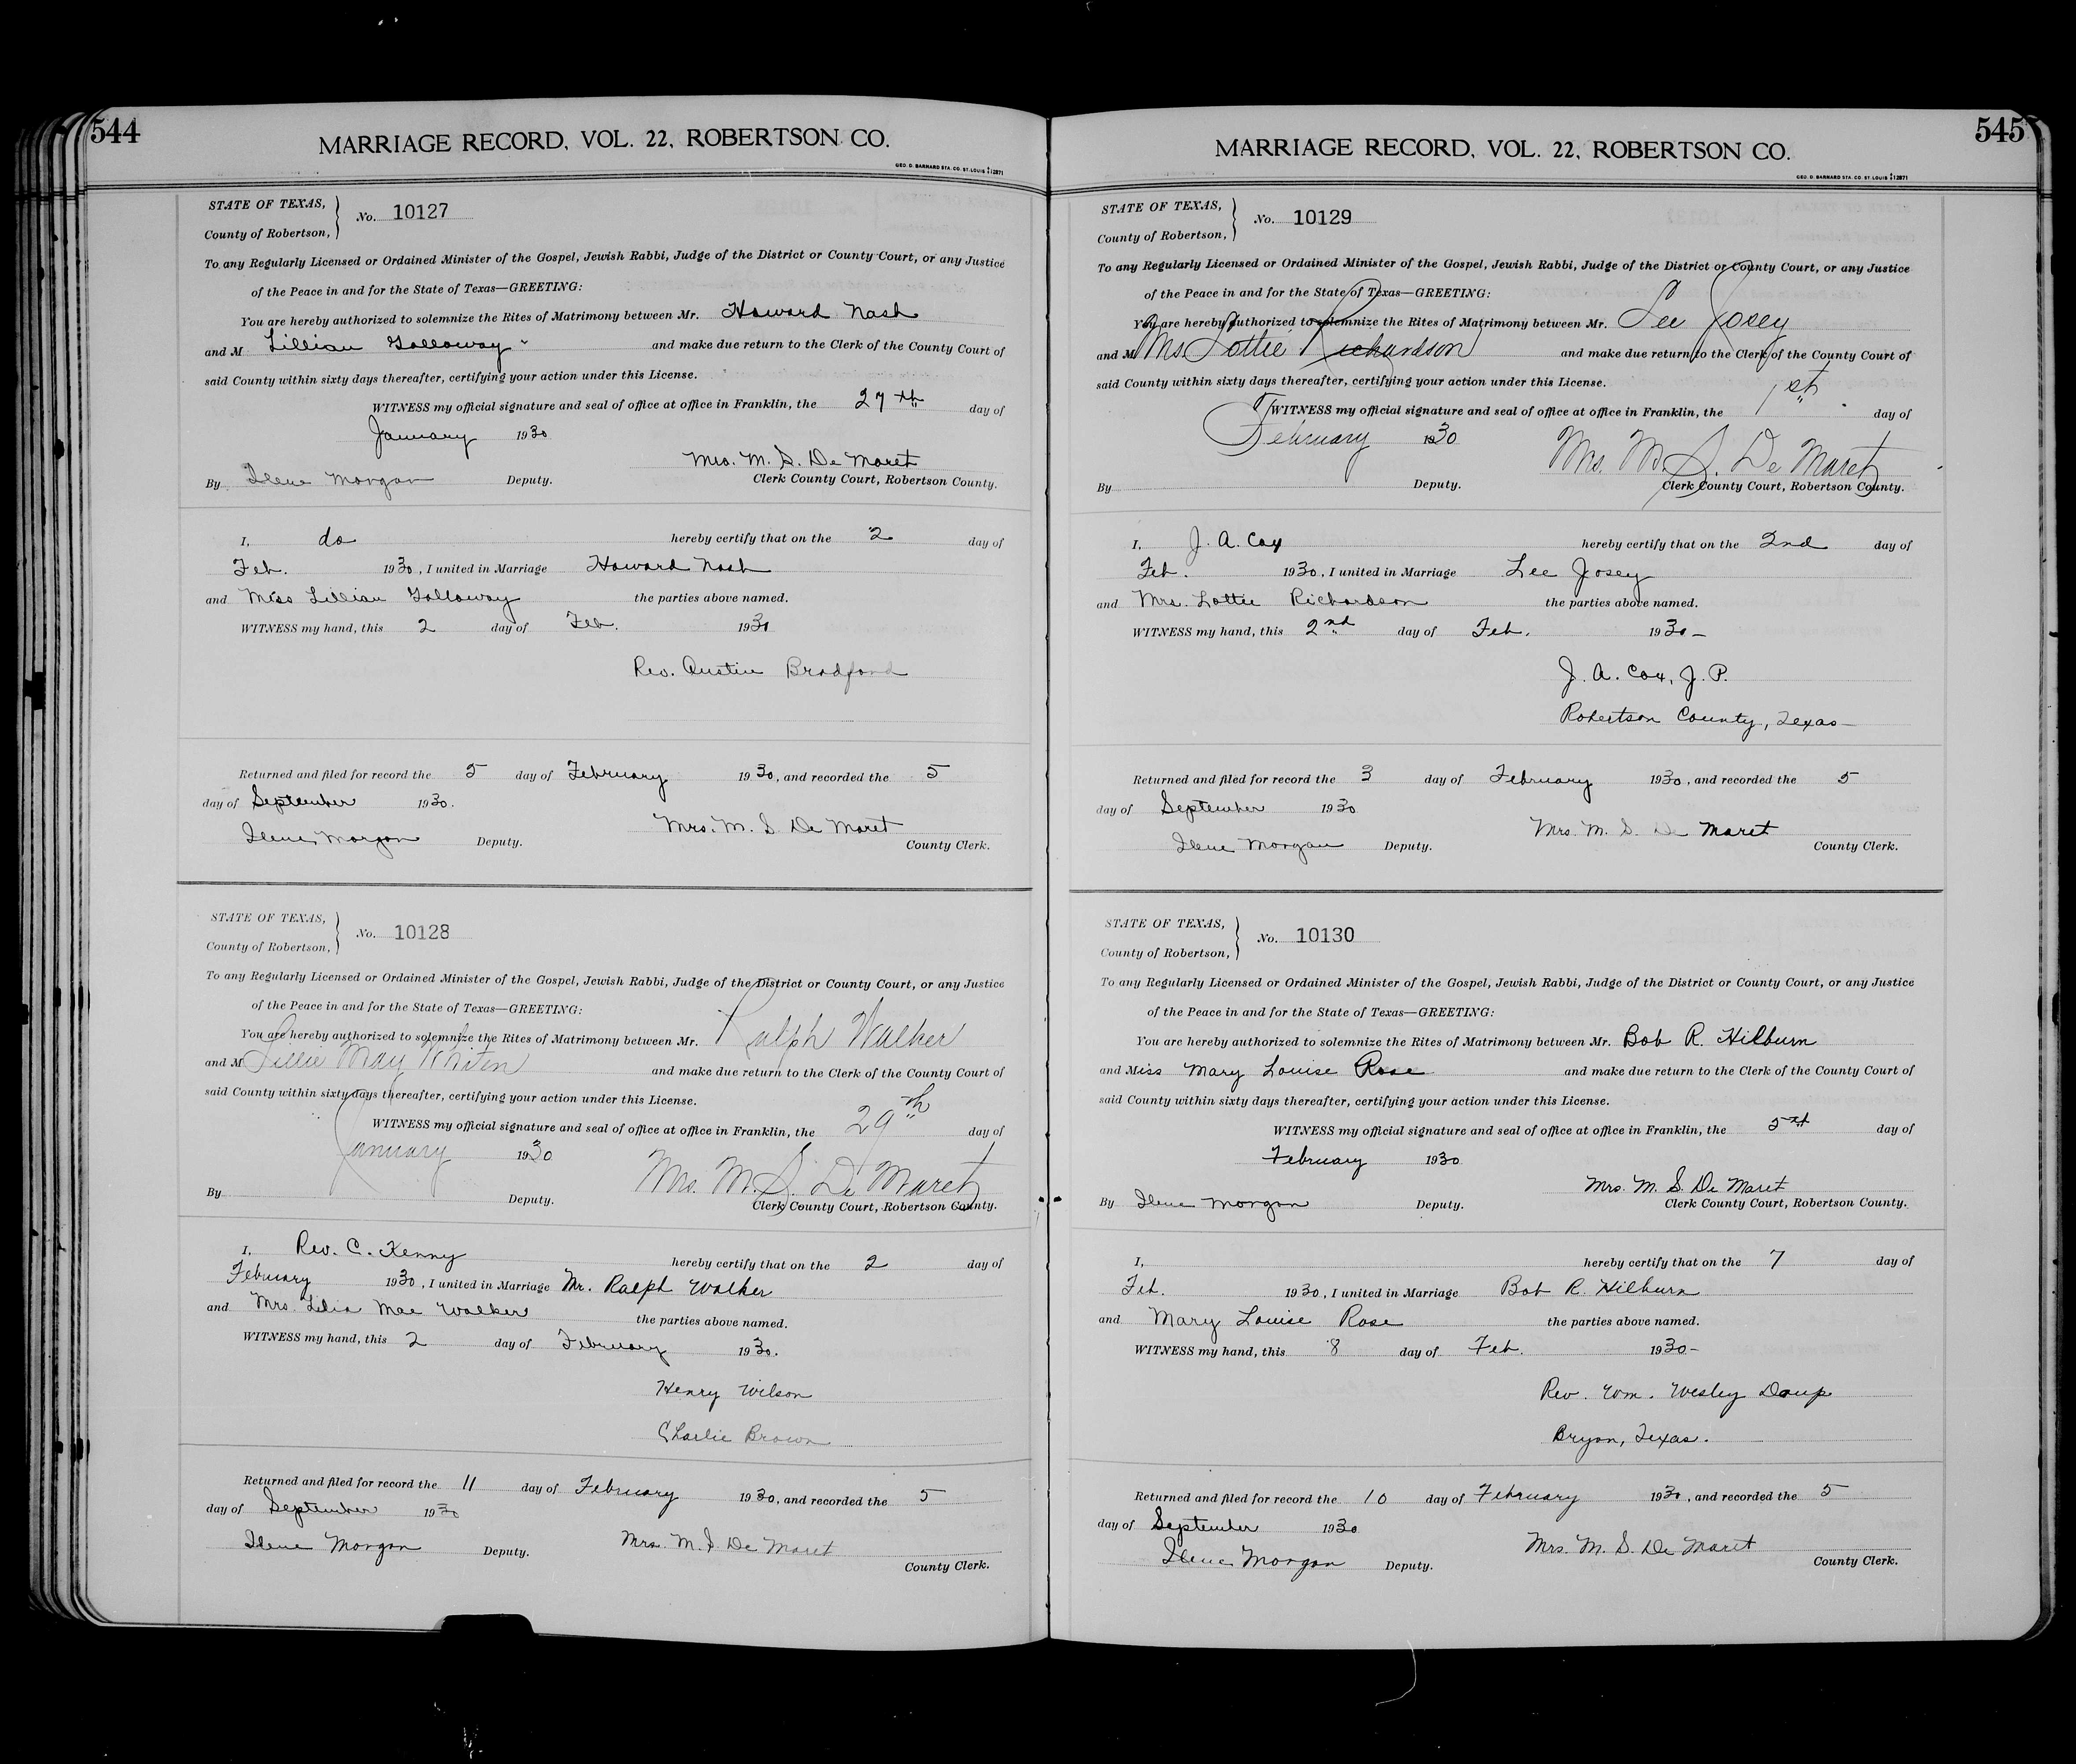 544
MARRIAGE RECORD, VOL. 22, ROBERTSON CO.
GEO. D. BARNARD STA. CO. ST. LOUIS
STATE OF TEXAS,
County of Robertson,
No. 10127
To any Regularly Licensed or Ordained Minister of the Gospel, Jewish Rabbi, Judge of the District or County Court, or any Justice
of the Peace in and for the State of Texas—GREETING:
You are hereby authorized to solemnize the Rites of Matrimony between Mr. Howard Nash
and M Lillian Galloway and make due return to the Clerk of the County Court of
said County within sixty days thereafter, certifying your action under this License.
WITNESS my official signature and seal of office at office in Franklin, the 27th day of
January 1930
Mrs. M. S. De Maret
By Ilene Morgan Deputy. Clerk County Court, Robertson County.
I, do hereby certify that on the 2 day of
Feb. 1930, I united in Marriage Howard Nash
and Miss Lillian Galloway the parties above named.
WITNESS my hand, this 2 day of Feb. 1930
Rev. Austin Bradford
Returned and filed for record the 5 day of February 1930, and recorded the 5
day of September 1930.
Ilene Morgan Deputy. Mrs. M. S. De Maret
County Clerk.
STATE OF TEXAS,
County of Robertson,
No. 10128
To any Regularly Licensed or Ordained Minister of the Gospel, Jewish Rabbi, Judge of the District or County Court, or any Justice
of the Peace in and for the State of Texas—GREETING:
You are hereby authorized to solemnize the Rites of Matrimony between Mr. Ralph Walker
and M Lillie May Whiten and make due return to the Clerk of the County Court of
said County within sixty days thereafter, certifying your action under this License.
WITNESS my official signature and seal of office at office in Franklin, the 29th day of
January 1930
Mrs. M. S. De Maret
By Deputy. Clerk County Court, Robertson County.
I, Rev. C. Kenny hereby certify that on the 2 day of
February 1930, I united in Marriage Mr. Ralph Walker
and Mrs. Lilia Mae Walker the parties above named.
WITNESS my hand, this 2 day of February 1930.
Henry Wilson
Charlie Brown
Returned and filed for record the 11 day of February 1930, and recorded the 5
day of September 1930
Ilene Morgan Deputy. Mrs. M. S. De Maret
County Clerk.
545
MARRIAGE RECORD, VOL. 22, ROBERTSON CO.
GEO. D. BARNARD STA. CO. ST. LOUIS
STATE OF TEXAS,
County of Robertson,
No. 10129
To any Regularly Licensed or Ordained Minister of the Gospel, Jewish Rabbi, Judge of the District or County Court, or any Justice
of the Peace in and for the State of Texas—GREETING:
You are hereby authorized to solemnize the Rites of Matrimony between Mr. Lee Josey
and M Mrs Lottie Richardson and make due return to the Clerk of the County Court of
said County within sixty days thereafter, certifying your action under this License.
WITNESS my official signature and seal of office at office in Franklin, the 1st day of
February 1930
Mrs. M. S. De Maret
By Deputy. Clerk County Court, Robertson County.
I, J. A. Cox hereby certify that on the 2nd day of
Feb. 1930, I united in Marriage Lee Josey
and Mrs. Lottie Richardson the parties above named.
WITNESS my hand, this 2nd day of Feb. 1930—
J. A. Cox, J. P.
Robertson County, Texas—
Returned and filed for record the 3 day of February 1930, and recorded the 5
day of September 1930
Ilene Morgan Deputy. Mrs. M. S. De Maret
County Clerk.
STATE OF TEXAS,
County of Robertson,
No. 10130
To any Regularly Licensed or Ordained Minister of the Gospel, Jewish Rabbi, Judge of the District or County Court, or any Justice
of the Peace in and for the State of Texas—GREETING:
You are hereby authorized to solemnize the Rites of Matrimony between Mr. Bob R. Hilburn
and Miss Mary Louise Rose and make due return to the Clerk of the County Court of
said County within sixty days thereafter, certifying your action under this License.
WITNESS my official signature and seal of office at office in Franklin, the 5th day of
February 1930
Mrs. M. S. De Maret
By Ilene Morgan Deputy. Clerk County Court, Robertson County.
I, hereby certify that on the 7 day of
Feb. 1930, I united in Marriage Bob R. Hilburn
and Mary Louise Rose the parties above named.
WITNESS my hand, this 8 day of Feb. 1930—
Rev. Wm. Wesley Doup
Bryan, Texas.
Returned and filed for record the 10 day of February 1930, and recorded the 5
day of September 1930
Ilene Morgan Deputy. Mrs. M. S. De Maret
County Clerk.